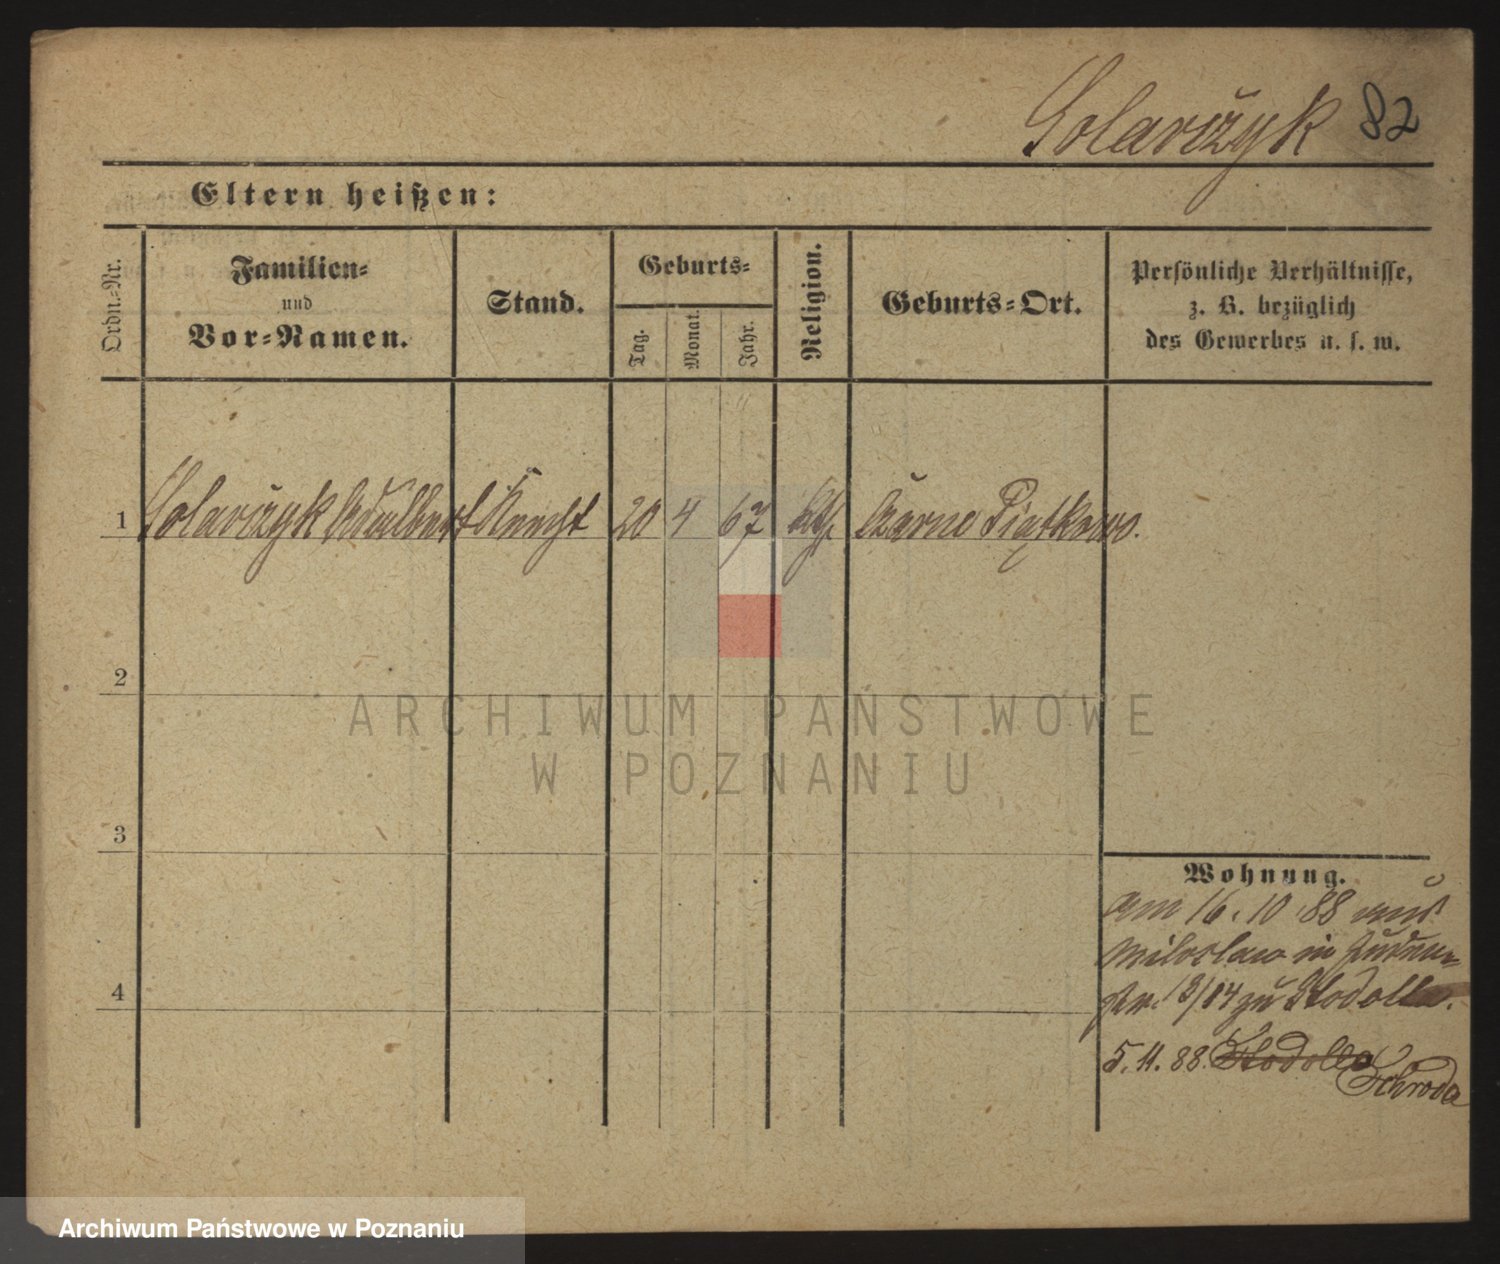 Solarczyk 82
Eltern heißen:
Ordn.-Nr.
Familien-
und
Vor-Namen.
Stand.
Geburts-
Tag.
Monat.
Jahr.
Religion.
Geburts-Ort.
Persönliche Verhältnisse,
z. B. bezüglich
des Gewerbes u. s. w.
1 Solarczyk Adalbert Knecht 20 4 67 kth. Czarne Piątkowo.
2
3
4
Wohnung.
Am 16. 10. 88 aus
Miloslaw in
3/14 zu Stodolla.
5. 11. 88. Stodolla
Schroda
ARCHIWUM PAŃSTWOWE
W POZNANIU
Archiwum Państwowe w Poznaniu